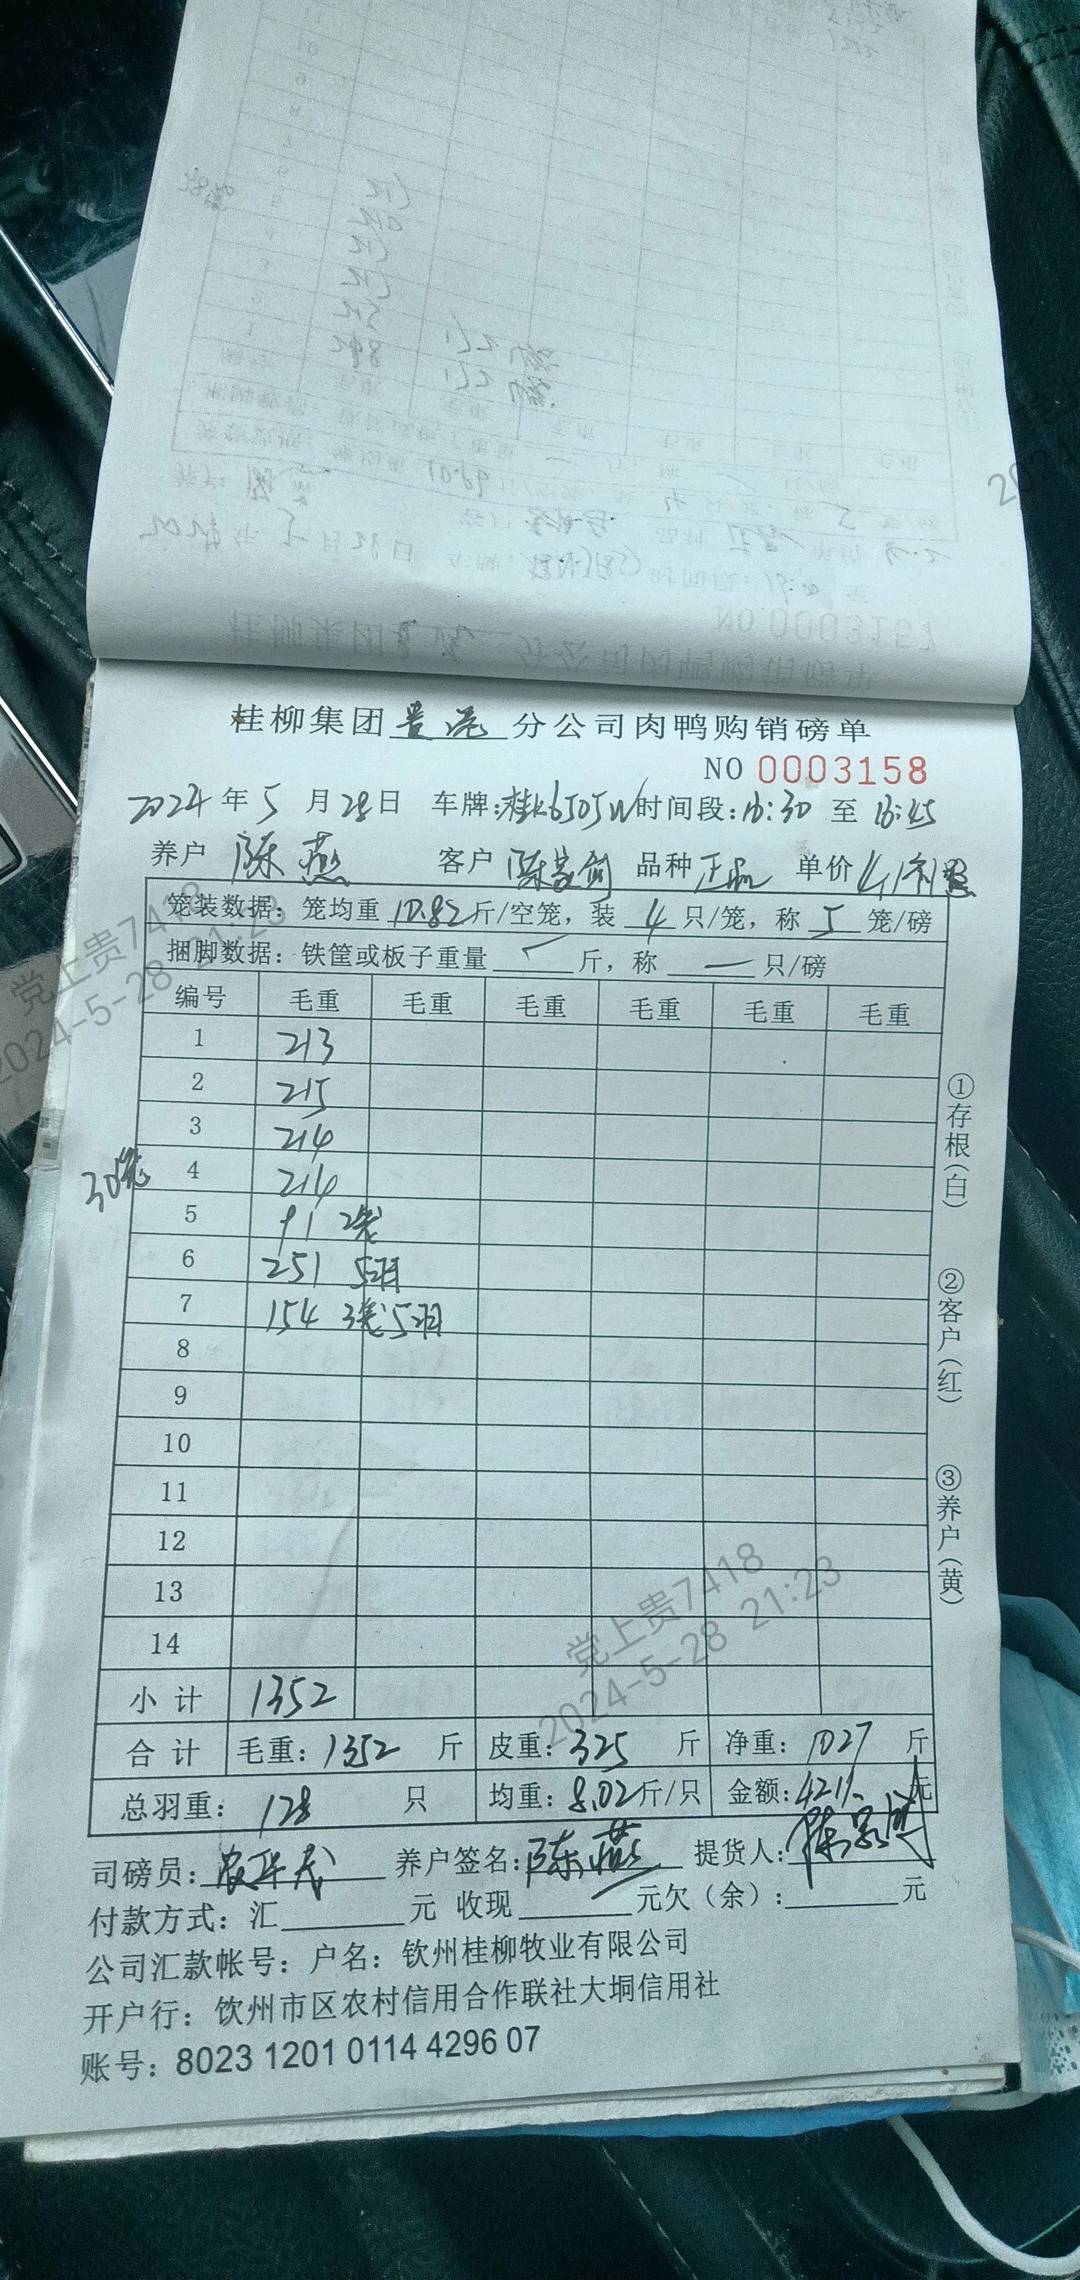 桂柳集团贵港分公司肉鸭购销磅单
NO 0003158
2024年5月28日 车牌:桂K6505W时间段:16:30至16:45
养户 陈燕 客户 陈家剑 品种 正品 单价4.1
笼装数据：笼均重10.82斤/空笼，装4只/笼，称5笼/磅
捆脚数据：铁筐或板子重量 斤，称 一 只/磅
编号 毛重 毛重 毛重 毛重 毛重 毛重
1 213
2 215
3 214
30笼
4 214
5 91 2笼
6 251 5羽
7 154 3笼5羽
8
9
10
11
12
13
14
小计 1352
合计 毛重:1352 斤 皮重:325 斤 净重:1027 斤
总羽重:128 只 均重:8.02斤/只 金额:4211 元
司磅员: 养户签名:陈燕 提货人:
付款方式：汇 元 收现 元欠（余）: 元
公司汇款帐号：户名：钦州桂柳牧业有限公司
开户行：钦州市区农村信用合作联社大垌信用社
账号：8023 1201 0114 4296 07
①存根（白）
②客户（红）
③养户（黄）
党上贵7418
2024-5-28 21:23
党上贵7418
2024-5-28 21:23